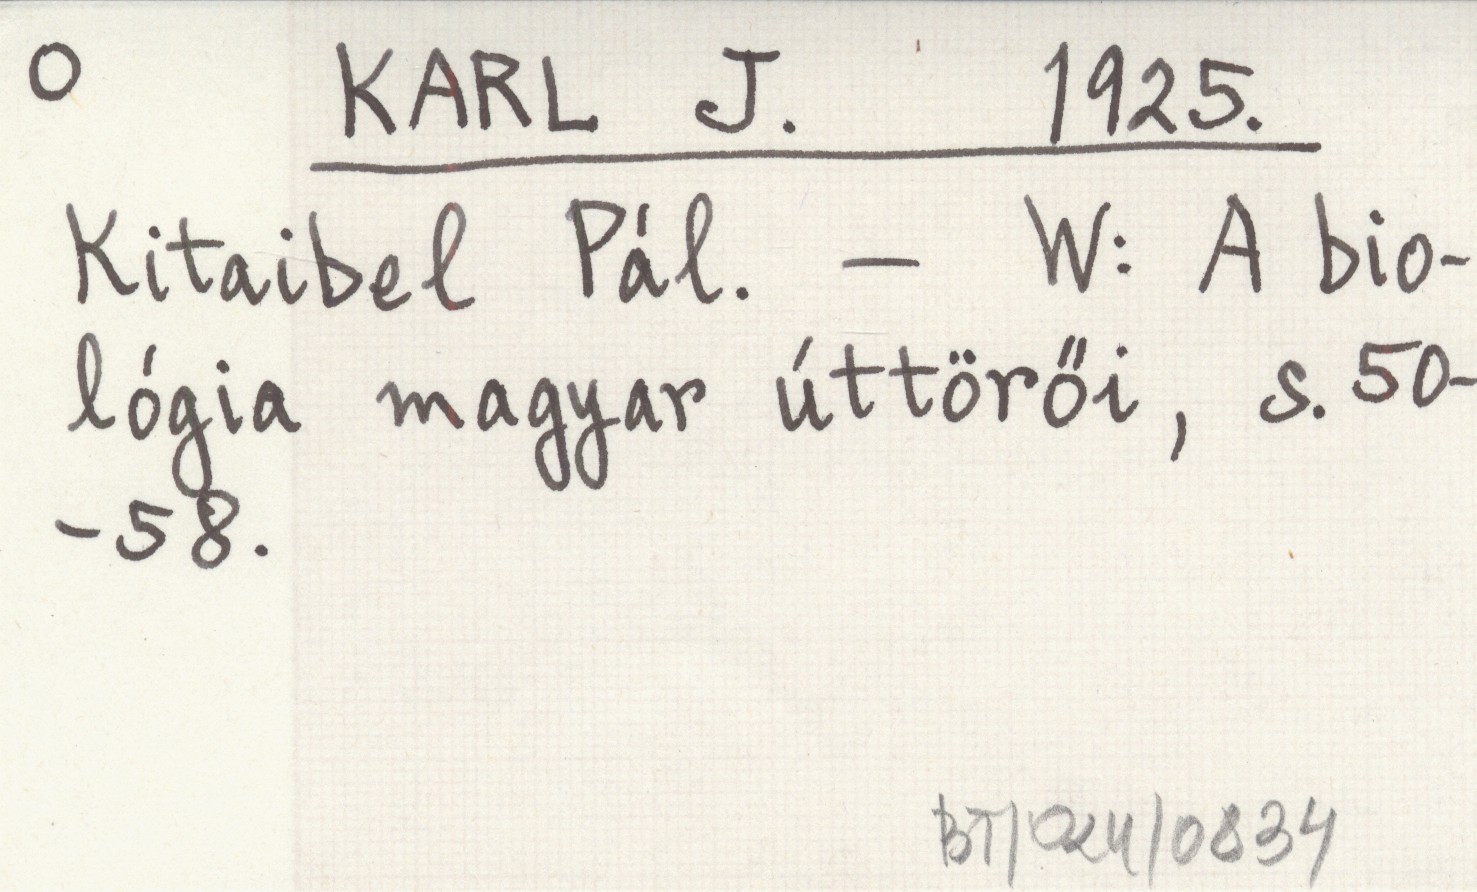 O KARL J. 1925.
Kitaibel Pál. — W: A bio-
lógia magyar úttörői, s. 50-
-58.
BT/024/0834